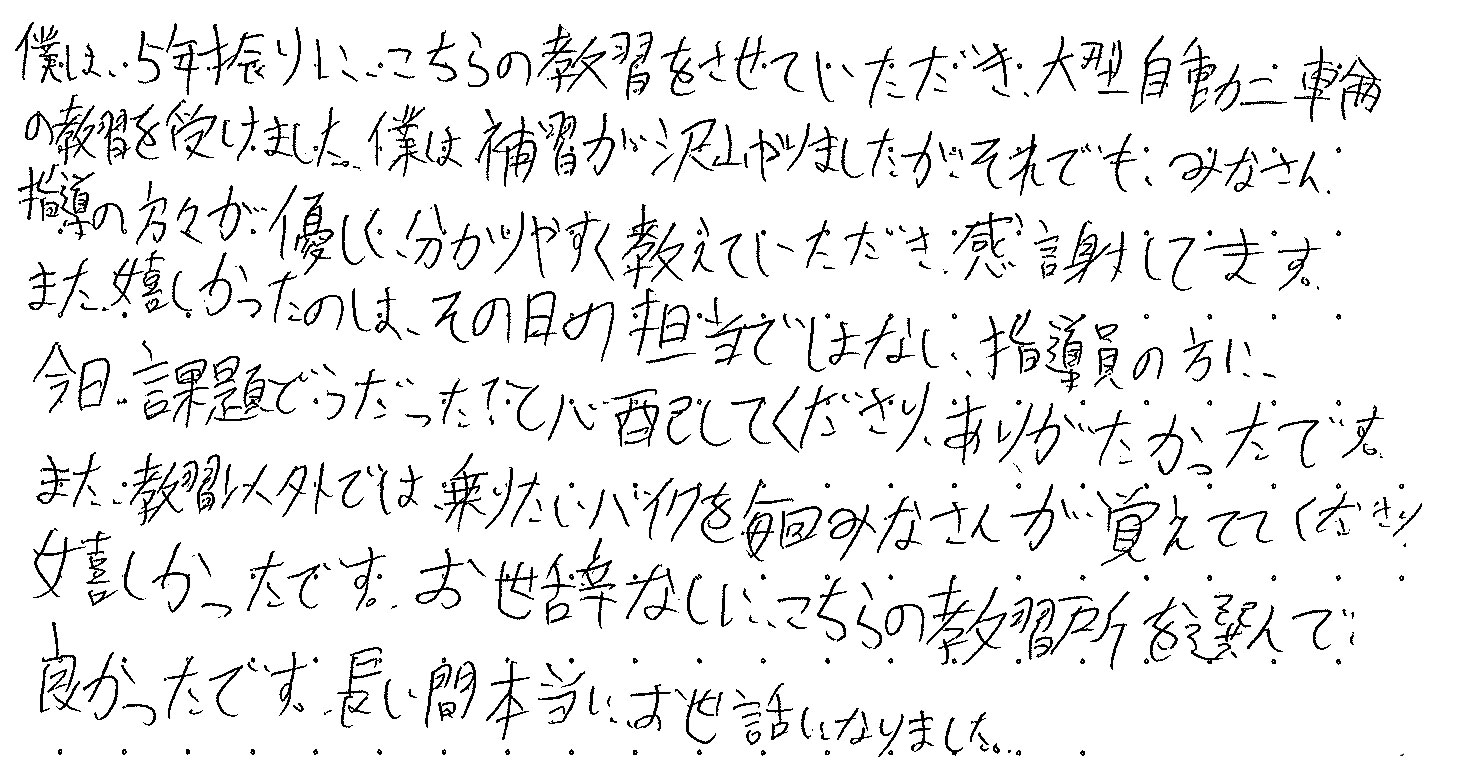 僕は、5年振りに、こちらの教習をさせていただき、大型自動二輪
の教習を受けました。僕は補習が沢山がりましたが、それでも、みなさん
指導の方々が優しく、分かりやすく教えていただき、感謝してます。
また、嬉しかったのは、その日の担当ではない、指導員の方に、
今日、課題でうだった?て心配してくださり、ありがたかったです。
また、教習以外では、乗りたいバイクを毎回みなさんが覚えててくださり
嬉しかったです。お世辞なしに、こちらの教習所を選んで
良かったです。長い間本当に、お世話になりました。